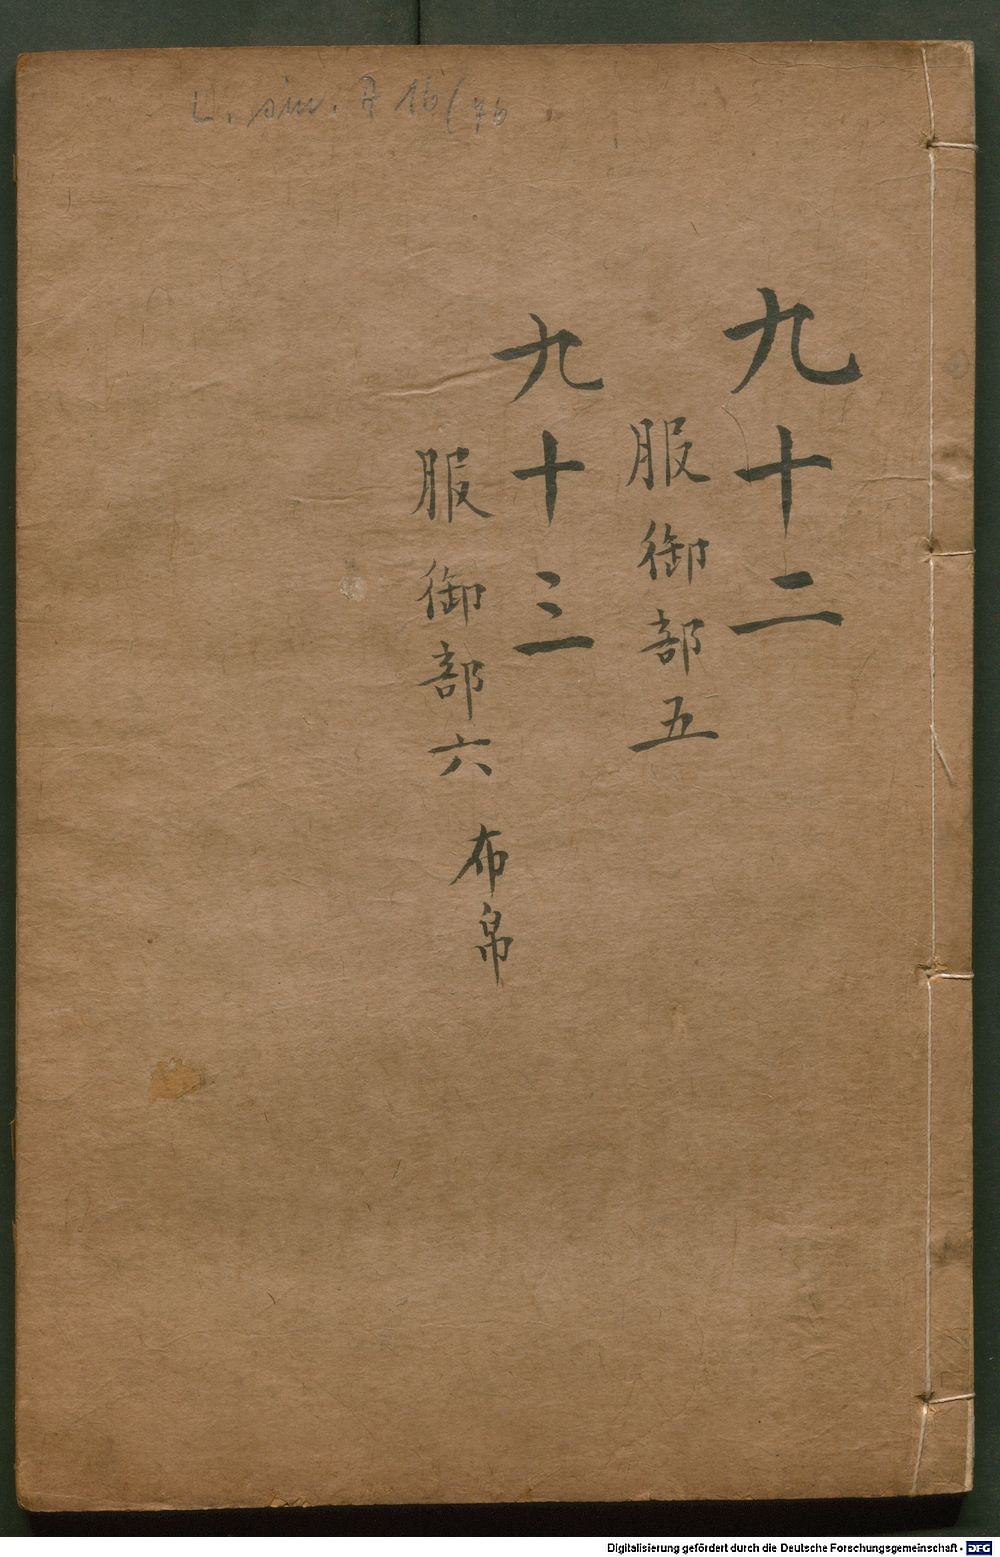 L. sin. A 16(46
九十二
服御部五
九十三
服御部六
布帛
Digitalisierung gefördert durch die Deutsche Forschungsgemeinschaft - DFG